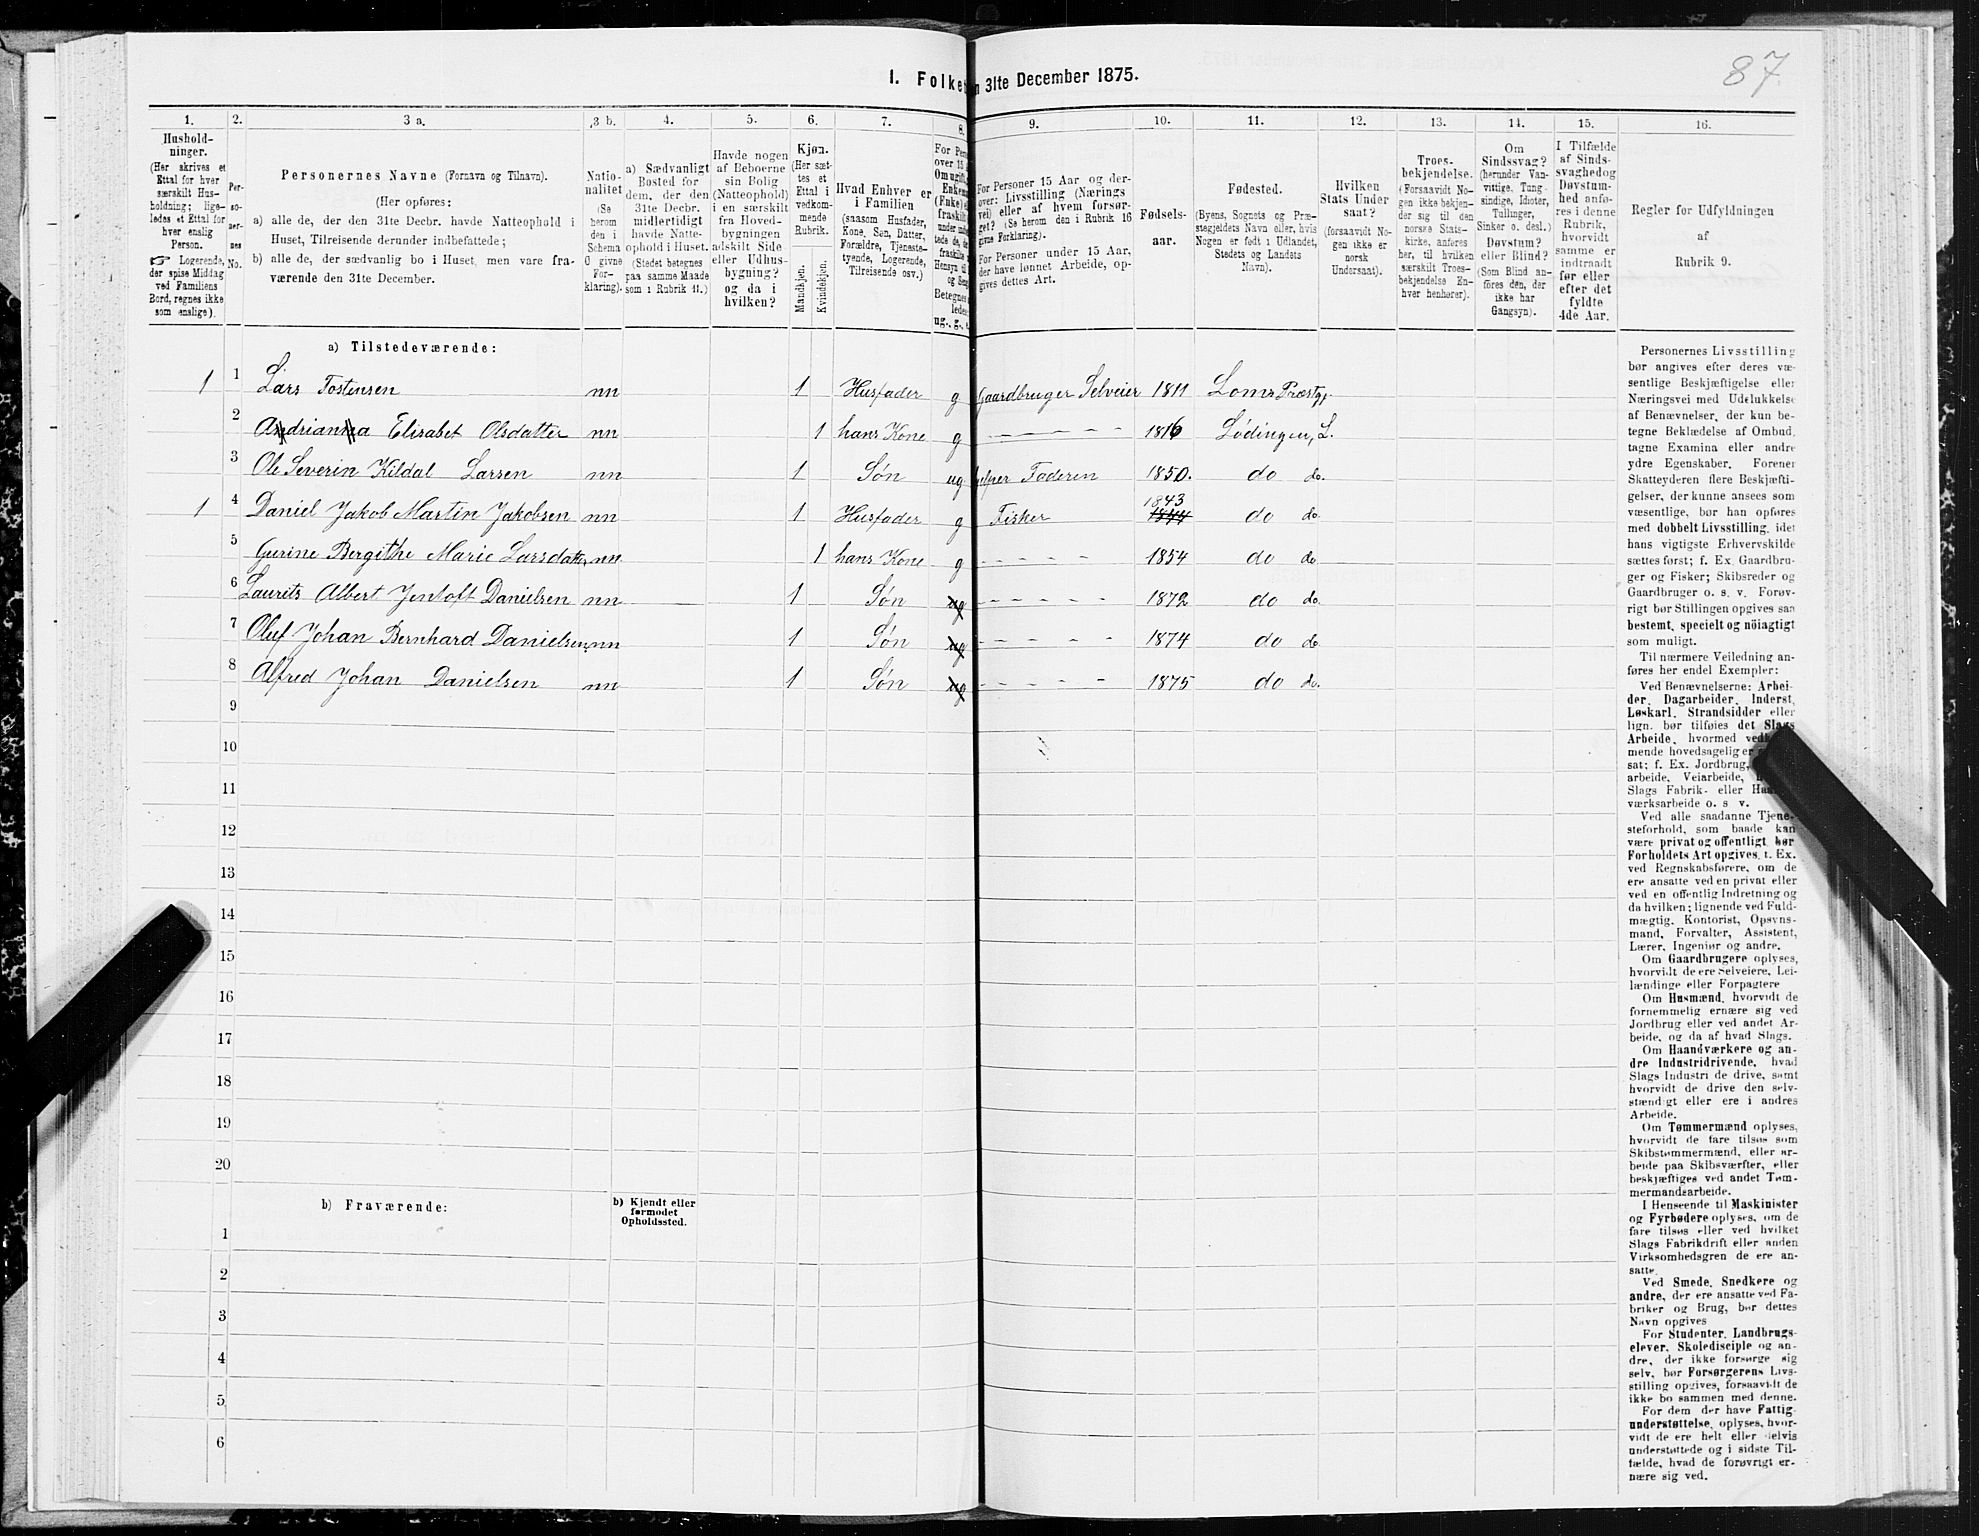 87
I. Folket
n 31te December 1875.
1. 2. 3 a. 3 b. 4. 5. 6. 7. 8. 9. 10. 11. 12. 13. 14. 15. 16.
Hushold-
ninger.
(Her skrives et
Ettal for hver
særskilt Hus-
holdning; lige-
ledes et Ettal for
hver enslig
Person.
☞ Logerende,
der spise Middag
ved Familiens
Bord, regnes ikke
som enslige).
Per-
so-
ner-
nes
No.
Personernes Navne (Fornavn og Tilnavn).
(Her opføres:
a) alle de, der den 31te Decbr. havde Natteophold i
Huset, Tilreisende derunder indbefattede;
b) alle de, der sædvanlig bo i Huset, men vare fra-
værende den 31te December.
Natio-
nalitet
(Se
herom
den i
Schema
O givne
For-
klaring).
a) Sædvanligt
Bosted for
dem, der den
31te Decbr.
midlertidigt
havde Natte-
ophold i Huset.
(Stedet betegnes
paa samme Maade
som i Rubrik 11.)
Havde nogen
af Beboerne
sin Bolig
(Natteophold)
i en særskilt
fra Hoved-
bygningen
adskilt Side
eller Udhus-
bygning?
og da i
hvilken?
Kjøn.
(Her sæt-
tes et
Ettal i
vedkom-
mende
Rubrik.
Mandkjøn.
Kvindekjøn.
Hvad Enhver er
i Familien
(saasom Husfader,
Kone, Søn, Datter,
Forældre, Tjeneste-
tyende, Logerende,
Tilreisende osv.)
For Pers
over 15 a
Om ugift,
Enkem
(Enke) e
fraskilt
Betegnes
ledes:
ug., g.,
For Personer 15 Aar og der-
over: Livsstilling (Nærings
vei) eller af hvem forsør-
get? (Se herom den i Rubrik 16
givne Forklaring).
For Personer under 15 Aar,
der have lønnet Arbeide, op-
gives dettes Art.
Fødsels-
aar.
Fødested.
(Byens, Sognets og Præ-
stegjeldets Navn eller, hvis
Nogen er født i Udlandet,
Stedets og Landets
Navn).
Hvilken
Stats Under
saat?
(forsaavidt No-
gen ikke er
norsk
Undersaat).
Troes-
bekjendelse.
(Forsaavidt No-
gen ikke bekjen-
der sig til den
norske Stats-
kirke, anføres
her, til hvilken
særskilt Troes-
bekjendelse En-
hver henhører).
Om
Sindssvag?
(herunder Van-
vittige, Tung-
sindige, Idioter,
Tullinger,
Sinker o. desl.)
Døvstum?
eller Blind?
(Som Blind an-
føres den, der
ikke har
Gangsyn).
I Tilfælde
af Sinds-
svaghed og
Døvstum-
hed anfø-
res i denne
Rubrik,
hvorvidt
samme er
indtraadt
før eller
efter det
fyldte
4de Aar.
Regler for Udfyldningen
af
Rubrik 9.
a) Tilstedeværende:
1 1 Lars Tostensen nn 1 Husfader g Gaardbruger Selveier 1811 Loms Præstgj.
2 Andrianna Elisabet Olsdatter nn 1 hans Kone g 1816 Lødingen, L.
3 Ole Severin Kildal Larsen nn 1 Søn ug hjelper Faderen 1850. do do.
1 4 Daniel Jakob Martin Jakobsen nn 1 Husfader g Fisker 1843 1844 do do
5 Gurine Bergithe Marie Larsdatter nn 1 hans Kone g 1854 do do
6 Laurits Albert Jentoft Danielsen nn 1 Søn ug 1872 do do
7 Oluf Johan Bernhard Danielsen nn 1 Søn ug 1874 do do
8 Alfred Johan Danielsen nn 1 Søn ug 1875 do do.
9
10
11
12
13
14
15
16
17
18
19
20
b) Fraværende:
b) Kjendt eller
formodet
Opholdssted.
1
2
3
4
5
6
Personernes Livsstilling
bør angives efter deres væ-
sentlige Beskjæftigelse eller
Næringsvei med Udelukkelse
af Benævnelser, der kun be-
tegne Beklædelse af Ombud,
tagne Examina eller andre
ydre Egenskaber. Forener
Skatteyderen flere Beskjæfti-
gelser, der kunne ansees som
væsentlige, bør han opføres
med dobbelt Livsstilling, idet
hans vigtigste Erhvervskilde
sættes først; f. Ex. Gaardbru-
ger og Fisker; Skibsreder og
Gaardbruger o. s. v. Forøv-
rigt bør Stillingen opgives saa
bestemt, specielt og nöiagtigt
som muligt.
Til nærmere Veiledning an-
føres her endel Exempler:
Ved Benævnelserne: Arbei-
der, Dagarbeider, Inderst,
Løskarl, Strandsidder eller
lign. bør tilføies det Slags
Arbeide, hvormed ved
mende hovedsagelig er
sat; f. Ex. Jordbrug,
arbeide, Veiarbeide,
Slags Fabrik- eller Haa
værksarbeide o. s v.
Ved alle saadanne Tjene-
steforhold, som baade kan
være privat og offentligt, bør
Forholdets Art opgives, t. Ex.
ved Regnskabsførere, om de
ere ansatte ved en privat eller
ved en offentlig Indretning og
da hvilken; lignende ved Fuld-
mægtig, Kontorist, Opsyns-
mand, Forvalter, Assistent,
Lærer, Ingeniør og andre.
Om Gaardbrugere oplyses,
hvorvidt de ere Selveiere, Lei-
lændinge eller Forpagtere
Om Husmænd, hvorvidt de
fornemmelig ernære sig ved
Jordbrug eller ved andet Ar-
beide, og da af hvad Slags.
Om Haandværkere og an-
dre Industridrivende, hvad
Slags Industri de drive, samt
hvorvidt de drive den selv-
stændigt eller ere i andres
Arbeide.
Om Tømmermænd oplyses,
hvorvidt de fare tilsøs som
Skibstømmermænd, eller ar-
beide paa Skibsværfter, eller
beskjæftiges ved andet Tøm-
mermandsarbeide.
I Henseende til Maskinister
og Fyrbødere oplyses, om de
fare tilsøs eller ved hvilket
Slags Fabrikdrift eller anden
Virksomhedsgren de ere an-
satte.
Ved Smede, Snedkere og
andre, der ere ansatte ved Fa-
briker og Brug, bør dettes
Navn opgives
For Studenter, Landbrugs-
elever, Skoledisciple og an-
dre, der ikke forsørge sig
selv, bør Forsørgerens Livs-
stilling opgives, forsaavidt de
ikke bo sammen med denne.
For dem der have Fattig-
understøttelse, oplyses, hvor-
vidt de ere helt eller delvis
understøttede og i sidste Til-
fælde, hvad de forøvrigt er-
nære sig ved.